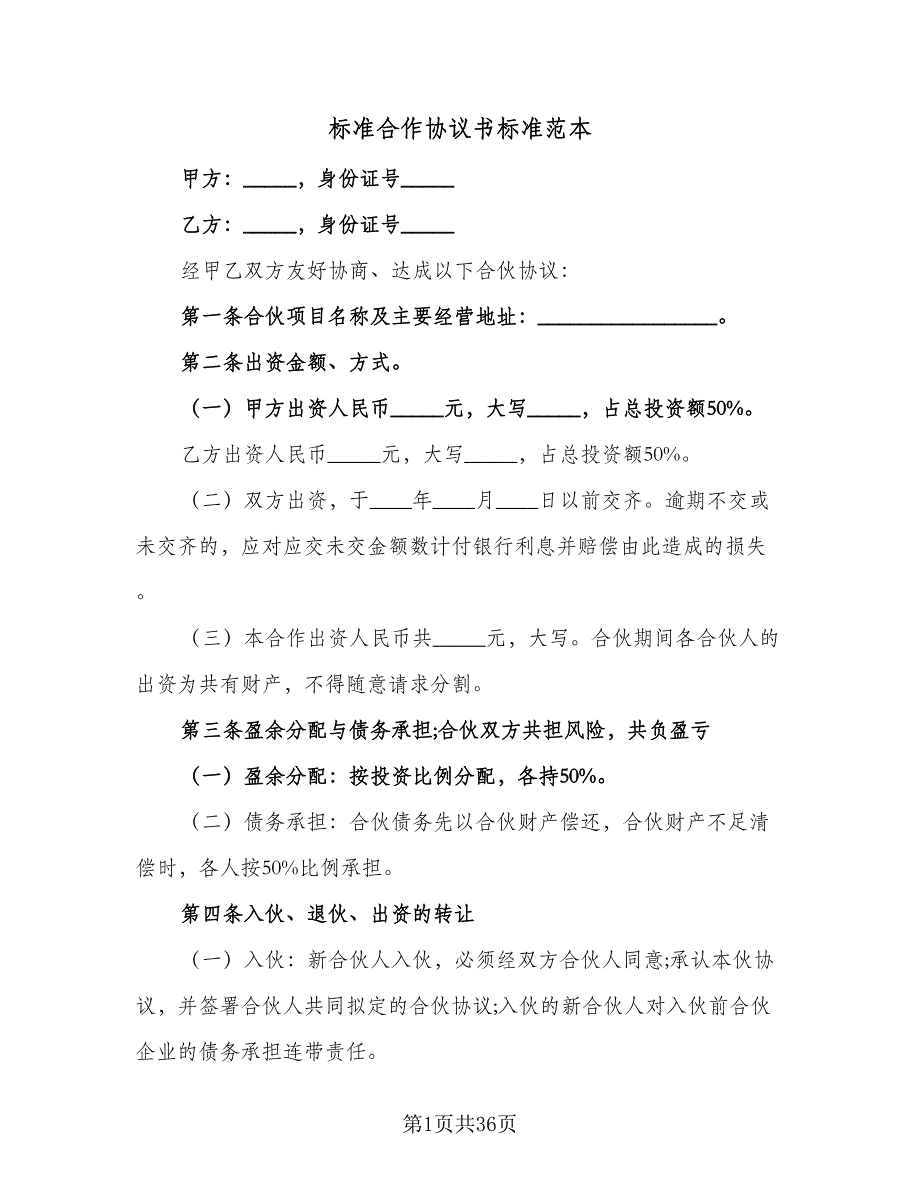 标准合作协议书标准范本
甲方：_____，身份证号_____
乙方：_____，身份证号_____
经甲乙双方友好协商、达成以下合伙协议：
第一条合伙项目名称及主要经营地址：_________________。
第二条出资金额、方式。
（一）甲方出资人民币_____元，大写_____，占总投资额50%。
乙方出资人民币_____元，大写_____，占总投资额50%。
（二）双方出资，于____年____月____日以前交齐。逾期不交或
未交齐的，应对应交未交金额数计付银行利息并赔偿由此造成的损失
。
（三）本合作出资人民币共_____元，大写。合伙期间各合伙人的
出资为共有财产，不得随意请求分割。
第三条盈余分配与债务承担;合伙双方共担风险，共负盈亏
（一）盈余分配：按投资比例分配，各持50%。
（二）债务承担：合伙债务先以合伙财产偿还，合伙财产不足清
偿时，各人按50%比例承担。
第四条入伙、退伙、出资的转让
（一）入伙：新合伙人入伙，必须经双方合伙人同意;承认本伙协
议，并签署合伙人共同拟定的合伙协议;入伙的新合伙人对入伙前合伙
企业的债务承担连带责任。
第1页共36页